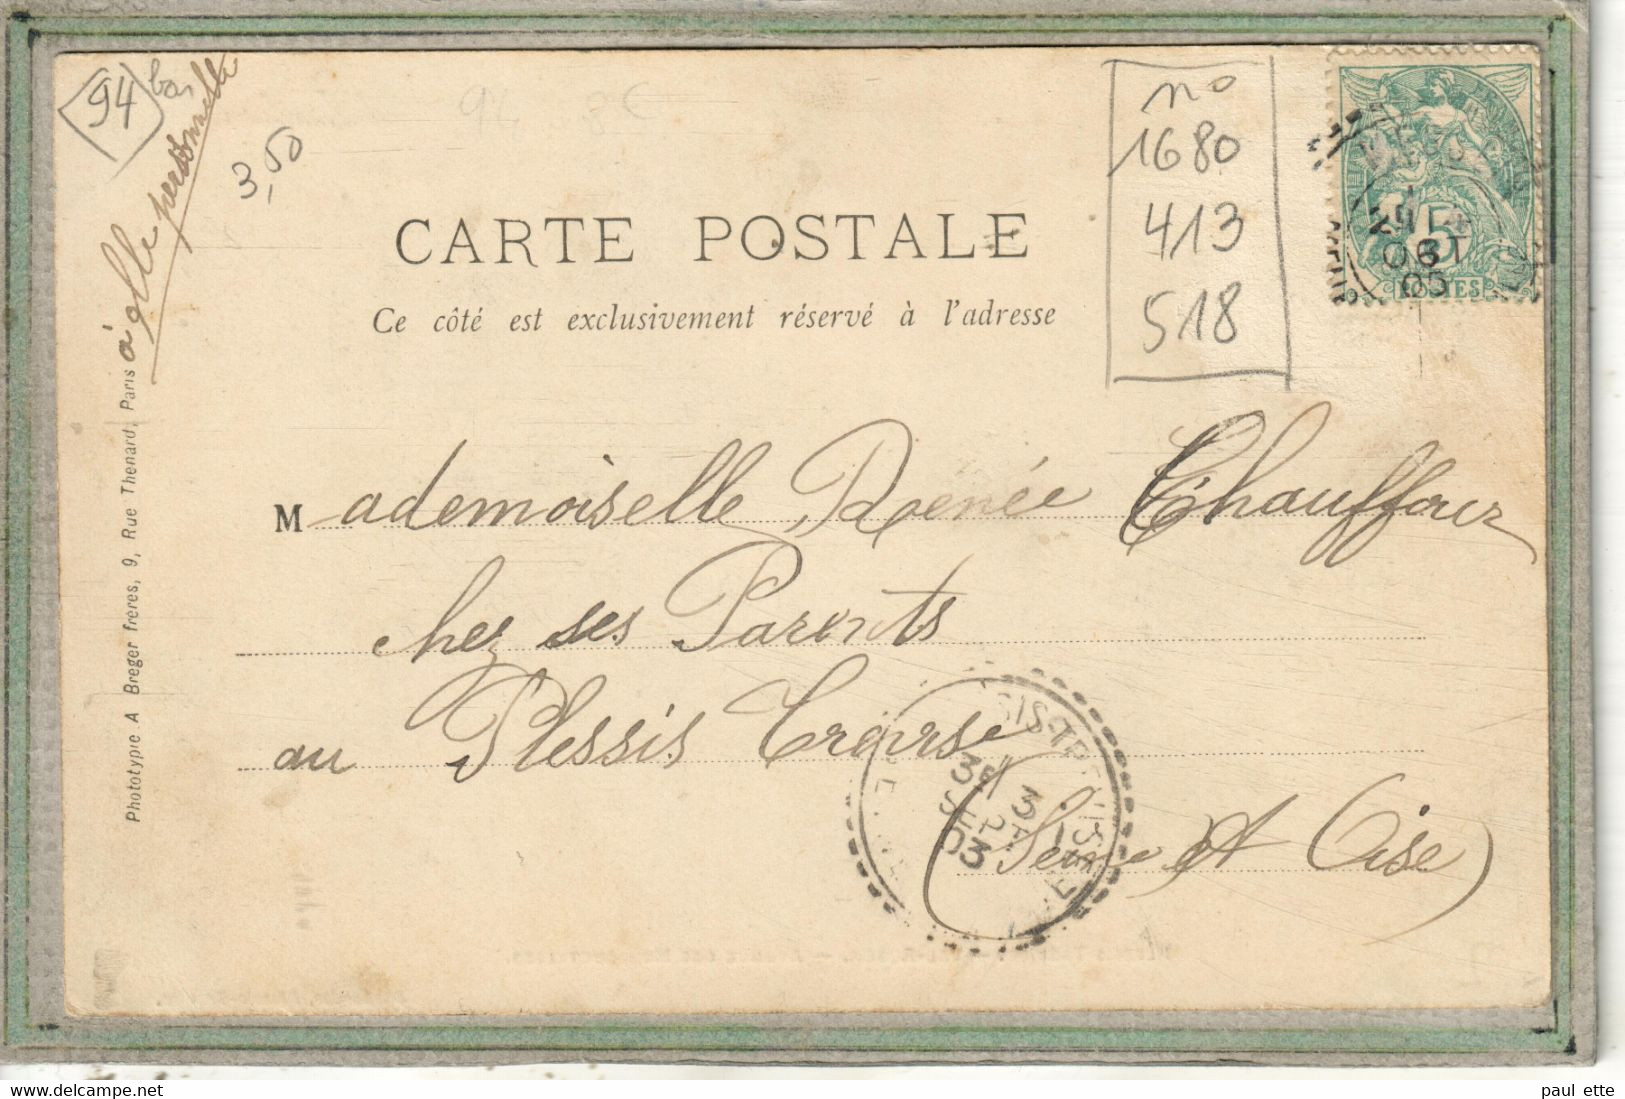 94 bas
3,50
à elle personnelle
94 8€
no
1680
413
518
5
POSTES
CARTE POSTALE
Ce côté est exclusivement réservé à l'adresse
Mademoiselle Renée Chauffour
chez ses Parents
au Plessis
(Seine et Oise)
Phototypie A Breger frères, 9, Rue Thenard, Paris
paul ette